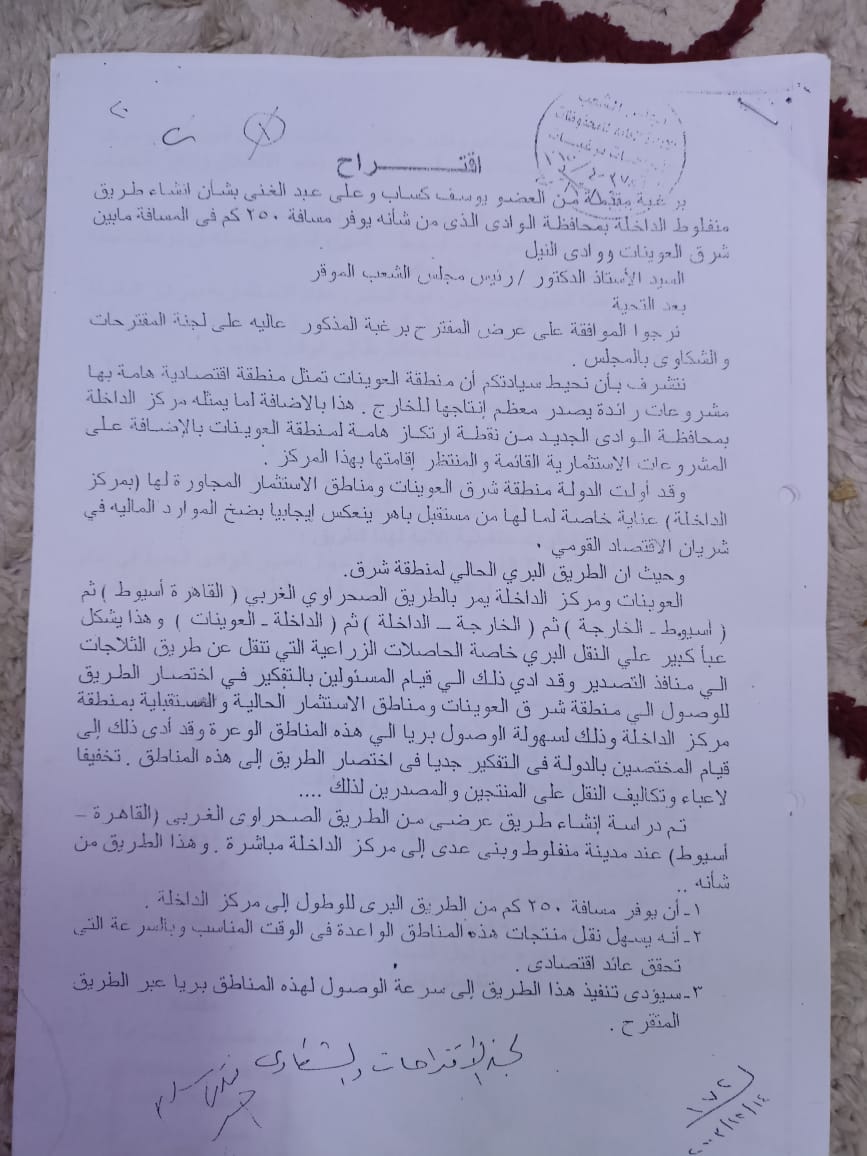 اقتـــــــراح
برغبة مقدمة من العضو يوسف كساب وعلى عبد الغنى بشان انشاء طريق
منفلوط الداخلة بمحافظة الوادى الذى من شأنه يوفر مسافة ٢٥٠ كم فى المسافة مابين
شرق العوينات ووادى النيل .
السيد الأستاذ الدكتور / رئيس مجلس الشعب الموقر
بعد التحية
نرجوا الموافقة على عرض المقترح برغبة المذكور عاليه على لجنة المقترحات
والشكاوى بالمجلس .
نتشرف بأن نحيط سيادتكم أن منطقة العوينات تمثل منطقة اقتصادية هامة بها
مشروعات رائدة يصدر معظم إنتاجها للخارج . هذا بالاضافة لما يمثله مركز الداخلة
بمحافظة الوادى الجديد من نقطة ارتكاز هامة لمنطقة العوينات بالإضافة على
المشروعات الاستثمارية القائمة والمنتظر إقامتها بهذا المركز .
وقد أولت الدولة منطقة شرق العوينات ومناطق الاستثمار المجاورة لها (بمركز
الداخلة) عناية خاصة لما لها من مستقبل باهر ينعكس ايجابيا بضخ الموارد الماليه في
شريان الاقتصاد القومي .
وحيث ان الطريق البري الحالي لمنطقة شرق.
العوينات ومركز الداخلة يمر بالطريق الصحراوي الغربي ( القاهرة أسيوط ) ثم
( أسيوط - الخارجة ) ثم ( الخارجة – الداخلة ) ثم ( الداخلة - العوينات ) وهذا يشكل
عبأ كبير علي النقل البري خاصة الحاصلات الزراعية التي تنقل عن طريق الثلاجات
الي منافذ التصدير وقد ادي ذلك الي قيام المسئولين بالتفكير في اختصار الطريق
للوصول الي منطقة شرق العوينات ومناطق الاستثمار الحالية والمستقبلية بمنطقة
مركز الداخلة وذلك لسهولة الوصول بريا الي هذه المناطق الوعرة وقد أدى ذلك إلى
قيام المختصين بالدولة فى التفكير جديا فى اختصار الطريق إلى هذه المناطق . تخفيفا
لاعباء وتكاليف النقل على المنتجين والمصدرين لذلك ....
تم دراسة إنشاء طريق عرضى من الطريق الصحراوى الغربى (القاهرة –
أسيوط) عند مدينة منفلوط وبنى عدى إلى مركز الداخلة مباشرة . وهذا الطريق من
شأنه ..
١- أن يوفر مسافة ٢٥٠ كم من الطريق البرى للوطول إلى مركز الداخلة .
٢- أنه يسهل نقل منتجات هذه المناطق الواعدة فى الوقت المناسب وبالسرعة التى
تحقق عائد اقتصادى .
٣- سيؤدى تنفيذ هذا الطريق إلى سرعة الوصول لهذه المناطق بريا عبر الطريق
المتقرح .
لجنة الاقتراحات والشكاوى
١٧٢